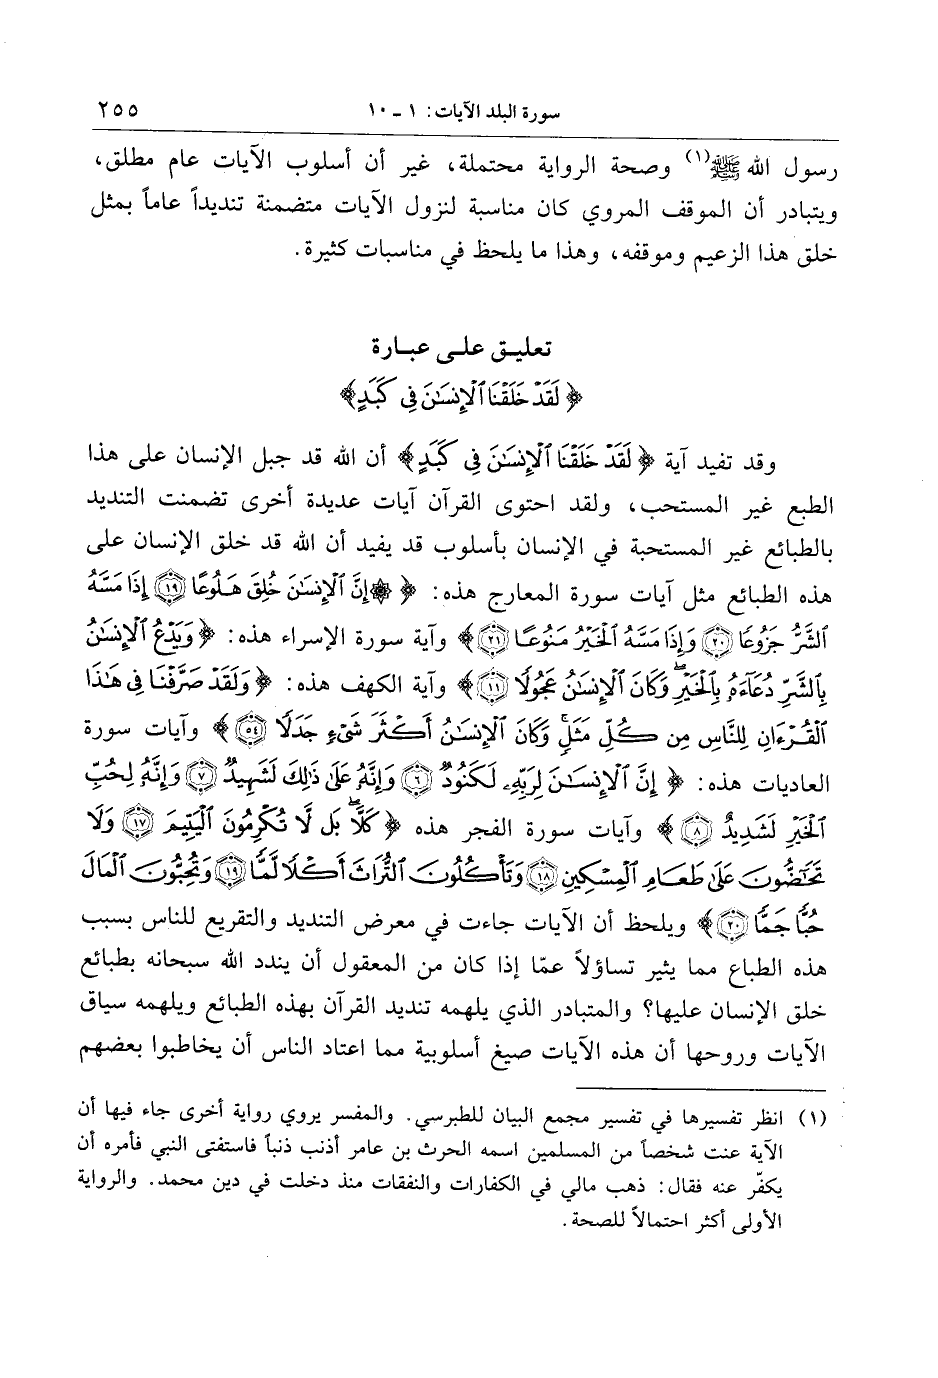 سورة البلد الآيات: ١ ـ ١٠ ٢٥٥
رسول الله ﷺ(١) وصحة الرواية محتملة، غير أن أسلوب الآيات عام مطلق،
ويتبادر أن الموقف المروي كان مناسبة لنزول الآيات متضمنة تنديداً عاماً بمثل
خلق هذا الزعيم وموقفه، وهذا ما يلحظ في مناسبات كثيرة.
تعليـق علـى عبـارة
﴿ لَقَدْ خَلَقْنَا ٱلْإِنسَٰنَ فِى كَبَدٍ﴾
وقد تفيد آية ﴿ لَقَدْ خَلَقْنَا ٱلْإِنسَٰنَ فِى كَبَدٍ﴾ أن الله قد جبل الإنسان على هذا
الطبع غير المستحب، ولقد احتوى القرآن آيات عديدة أخرى تضمنت التنديد
بالطبائع غير المستحبة في الإنسان بأسلوب قد يفيد أن الله قد خلق الإنسان على
هذه الطبائع مثل آيات سورة المعارج هذه: ﴿ ۞إِنَّ ٱلْإِنسَٰنَ خُلِقَ هَلُوعًا ١٩ إِذَا مَسَّهُ
ٱلشَّرُّ جَزُوعًا ٢٠ وَإِذَا مَسَّهُ ٱلْخَيْرُ مَنُوعًا ٢١﴾ وآية سورة الإسراء هذه: ﴿ وَيَدْعُ ٱلْإِنسَٰنُ
بِٱلشَّرِّ دُعَآءَهُۥ بِٱلْخَيْرِۖ وَكَانَ ٱلْإِنسَٰنُ عَجُولًا ١١﴾ وآية الكهف هذه: ﴿ وَلَقَدْ صَرَّفْنَا فِى هَٰذَا
ٱلْقُرْءَانِ لِلنَّاسِ مِن كُلِّ مَثَلٍۚ وَكَانَ ٱلْإِنسَٰنُ أَكْثَرَ شَىْءٍ جَدَلًا ٥٤ ﴾ وآيات سورة
العاديات هذه: ﴿ إِنَّ ٱلْإِنسَٰنَ لِرَبِّهِۦ لَكَنُودٌ ٦ وَإِنَّهُۥ عَلَىٰ ذَٰلِكَ لَشَهِيدٌ ٧ وَإِنَّهُۥ لِحُبِّ
ٱلْخَيْرِ لَشَدِيدٌ ٨ ﴾ وآيات سورة الفجر هذه ﴿ كَلَّاۖ بَل لَّا تُكْرِمُونَ ٱلْيَتِيمَ ١٧ وَلَا
تَحَٰٓضُّونَ عَلَىٰ طَعَامِ ٱلْمِسْكِينِ ١٨ وَتَأْكُلُونَ ٱلتُّرَاثَ أَكْلًا لَّمًّا ١٩ وَتُحِبُّونَ ٱلْمَالَ
حُبًّا جَمًّا ٢٠﴾ ويلحظ أن الآيات جاءت في معرض التنديد والتقريع للناس بسبب
هذه الطباع مما يثير تساؤلاً عمّا إذا كان من المعقول أن يندد الله سبحانه بطبائع
خلق الإنسان عليها؟ والمتبادر الذي يلهمه تنديد القرآن بهذه الطبائع ويلهمه سياق
الآيات وروحها أن هذه الآيات صيغ أسلوبية مما اعتاد الناس أن يخاطبوا بعضهم
(١) انظر تفسيرها في تفسير مجمع البيان للطبرسي. والمفسر يروي رواية أخرى جاء فيها أن
الآية عنت شخصاً من المسلمين اسمه الحرث بن عامر أذنب ذنباً فاستفتى النبي فأمره أن
يكفّر عنه فقال: ذهب مالي في الكفارات والنفقات منذ دخلت في دين محمد. والرواية
الأولى أكثر احتمالاً للصحة.